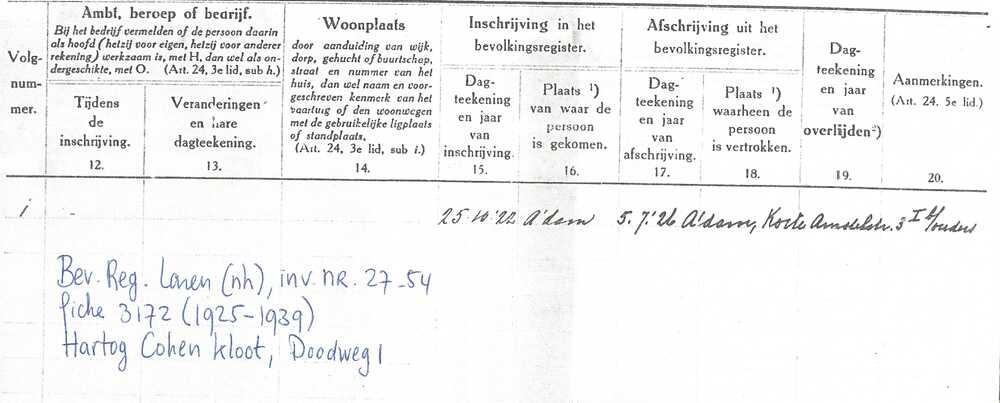 Volg-
num-
mer.
Ambt, beroep of bedrijf.
Bij het bedrijf vermelden of de persoon daarin
als hoofd (hetzij voor eigen, hetzij voor anderer
rekening) werkzaam is, met H, dan wel als on-
dergeschikte, met O. (Art. 24, 3e lid, sub h.)
Tijdens
de
inschrijving.
12.
Veranderingen
en hare
dagteekening.
13.
Woonplaats
door aanduiding van wijk,
dorp, gehucht of buurtschap,
straat en nummer van het
huis, dan wel naam en voor-
geschreven kenmerk van het
vaartuig of den woonwagen
met de gebruikelijke ligplaats
of standplaats.
(Art. 24, 3e lid, sub i.)
14.
Inschrijving in het
bevolkingsregister.
Dag-
teekening
en jaar
van
inschrijving.
15.
Plaats ¹)
van waar de
persoon
is gekomen.
16.
Afschrijving uit het
bevolkingsregister.
Dag-
teekening
en jaar
van
afschrijving.
17.
Plaats ¹)
waarheen de
persoon
is vertrokken.
18.
Dag-
teekening
en jaar
van
overlijden²)
19.
Aanmerkingen.
(Art. 24. 5e lid.)
20.
1 - 25 10 '22 A'dam 5. 7. '26 A'dam, Korte Amstelstr. 3 I b/ouders
Bev. Reg. Laren (nh), inv. nr. 27-54
fiche 3172 (1925-1939)
Hartog Cohen kloot, Doodweg 1